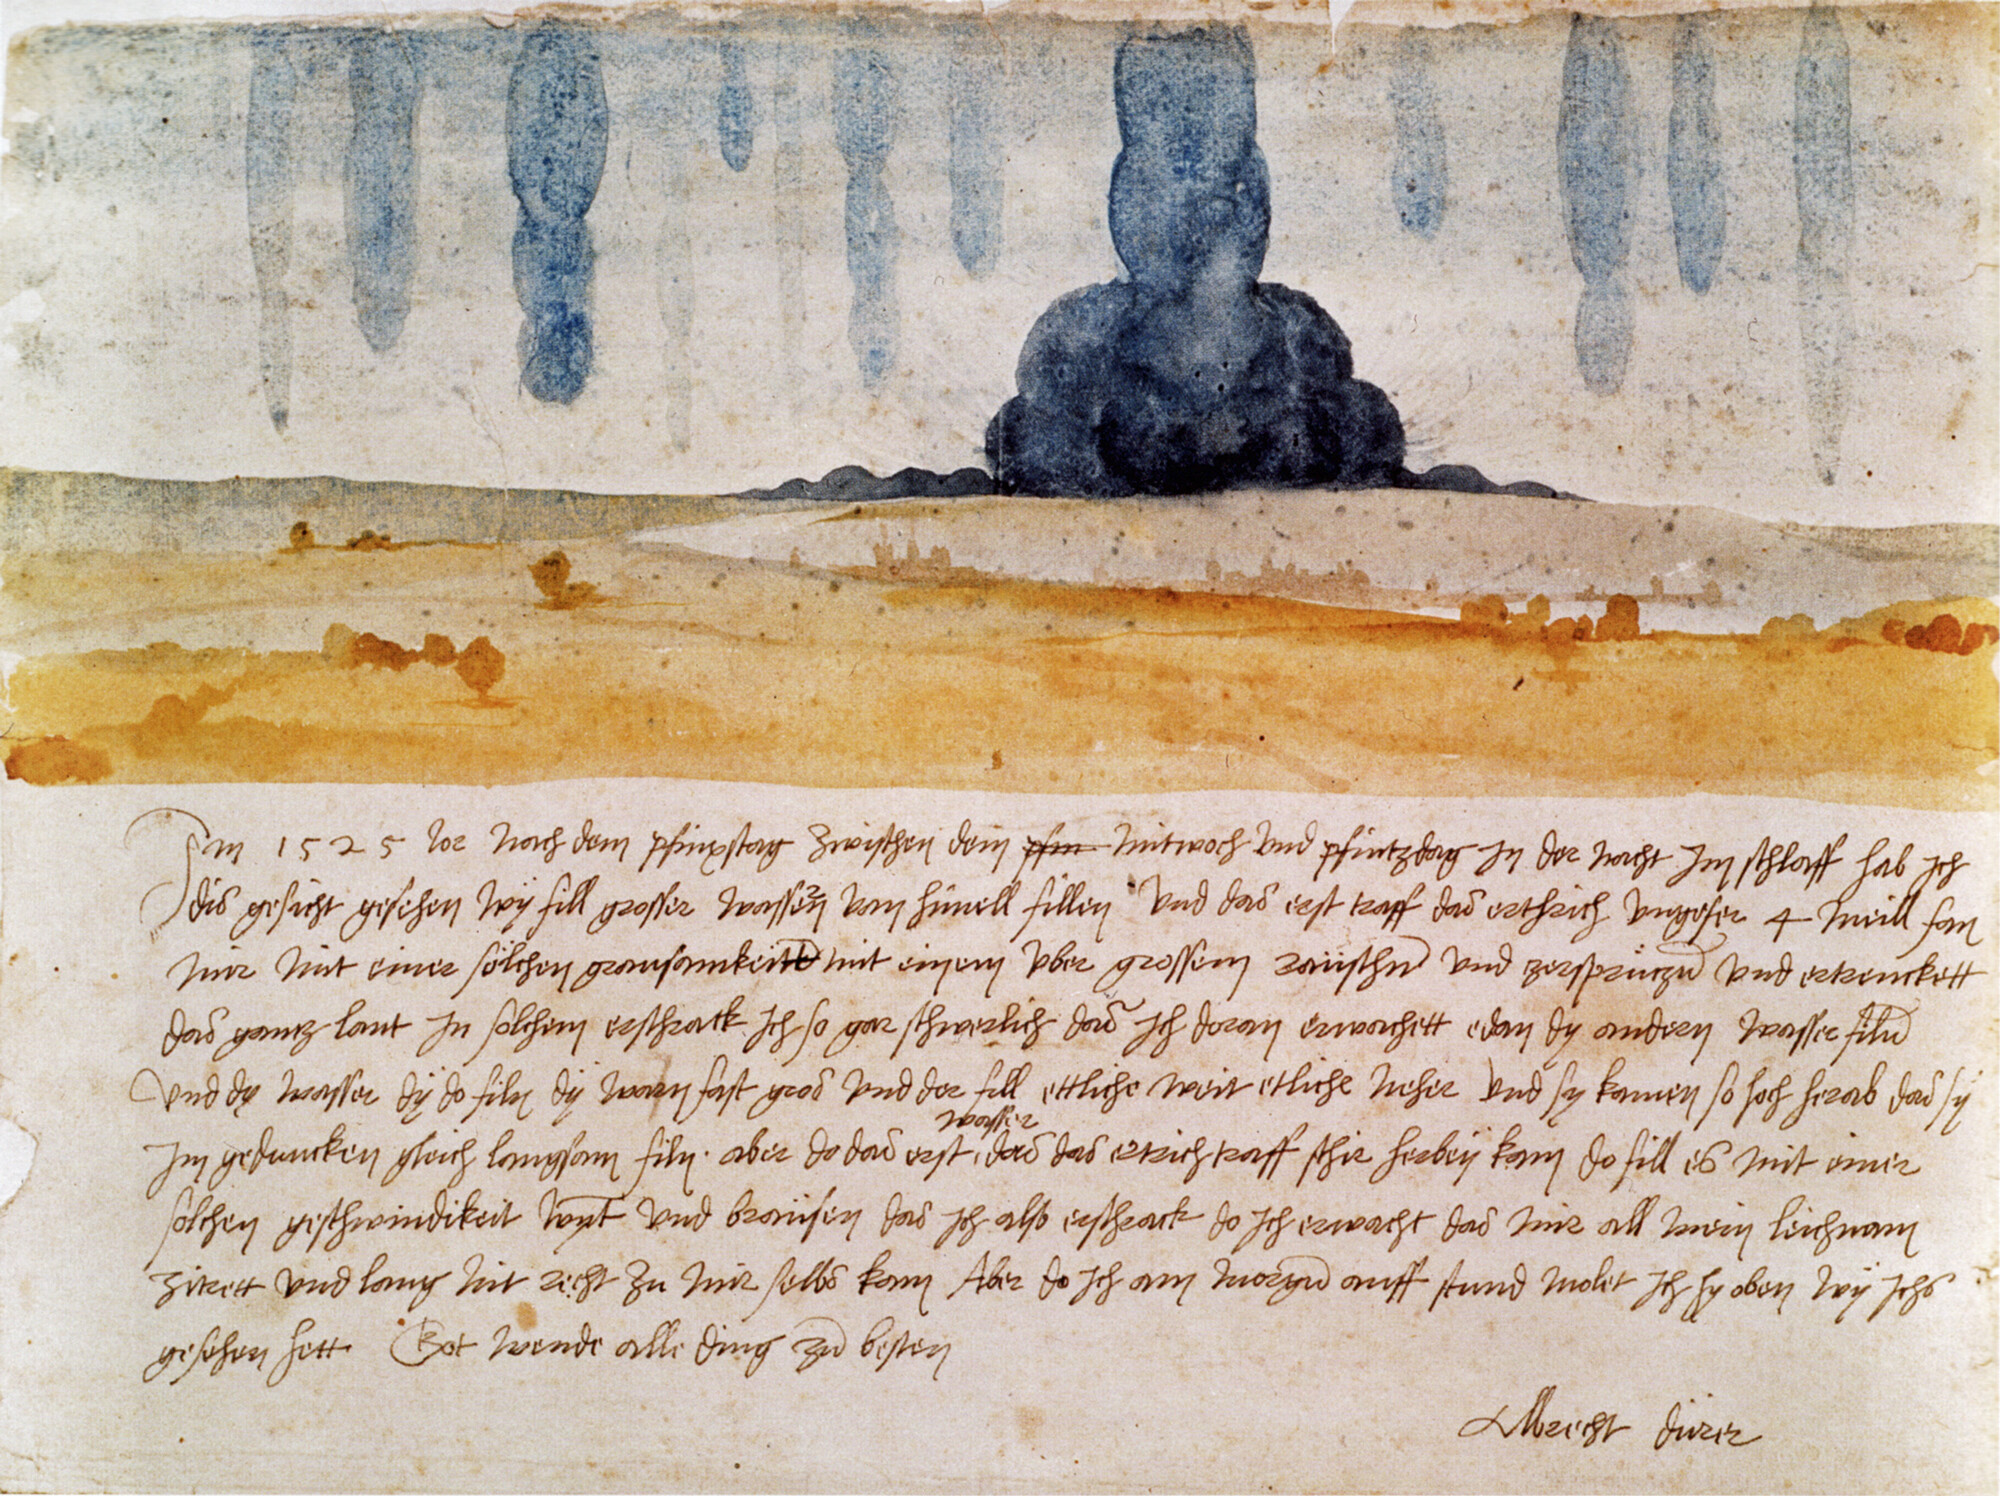 Im 1525 Jor nach dem pfinxstag zwischen dem pfin mitwoch und pfintzdag in der nacht Im schlaff hab ich
dis gesicht gesehen wÿ fill grosser wassern van himell fillen Und das erst traff das erthrich ungefer 4 meill fan
mir mit einer sölchen grausamkeitt mit einem uber grossem raüschn und zersprützn und ertrenckett
das gantz lant In sölchem erschrack Ich so gar schwerlich das ich doran erwachett edan dy andern wasser filn
Und dy wasser dÿ do filn dÿ warn fast gros und der fill ettliche weit etliche neher und sy kamen so hoch herab das sÿ
Im gedancken gleich langsam filn. aber do das erst
wasser
das das ertrich traff schir herbeÿ kam do fill es mit einer
sölchen geschwindikeit wynt und braüsen das ich also erschrack do Ich erwacht das mir all mein leichnam
zitrett und lang nit recht zu mir selbs kam Aber do Ich am morgn auff stund molet Ich hy oben wÿ Ichs
gesehen hett. Got wende alle ding zu besten
Albrecht dürer